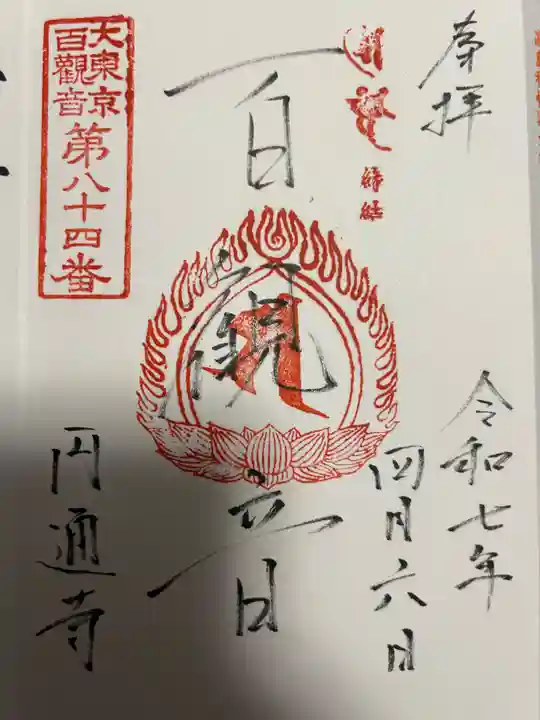 奉拝
縁結
令和七年
四月六日
百観音
円通寺
大東京
百觀音
第八十四番